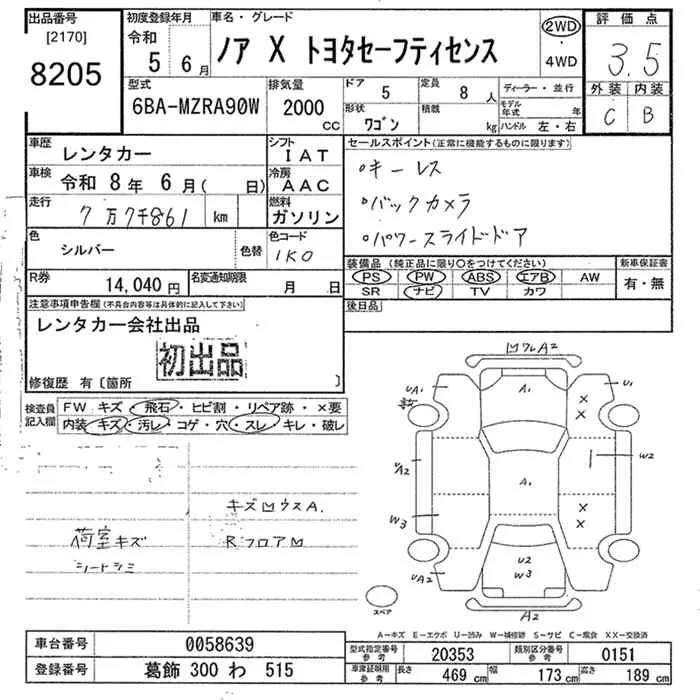 出品番号
[2170]
8205
初度登録年月
令和
5 6月
車名・グレード
ノア X トヨタセーフティセンス
2WD
・
4WD
評価点
3.5
外装 内装
C B
型式
6BA-MZRA90W
排気量
2000
cc
ドア
5
定員
8 人
形状
ワゴン
積載
kg
ディーラー・並行
モデル年式 年
ハンドル 左・右
車歴
レンタカー
車検
令和 8年 6月( 日)
走行
7万7千861 km
色
シルバー
色替
シフト
IAT
冷房
AAC
燃料
ガソリン
色コード
1K0
R券
14,040 円
名変通知期限
月 日
セールスポイント(正常に機能するものに限ります)
○キーレス
○バックカメラ
○パワースライドドア
装備品(純正品に限り○をつけてください)
PS PW ABS エアB AW
SR ナビ TV カワ
新車保証書
有・無
後日品
注意事項申告欄(不具合内容等は具体的に記入して下さい)
レンタカー会社出品
初出品
修復歴 有〔箇所 〕
検査員
記入欄
FW キズ・飛石・ヒビ割・リペア跡・×要
内装・キズ・汚レ・コゲ・穴・スレ・キレ・破レ
荷室キズ
シートシミ
R フロア凹
凹 フレA2
UA1
A1
U1
×
×
UA2
A1
W2
W3
×
×
UA2
U2
W3
スペア
A2
A-キズ E-エクボ U-凹み W-補修跡 S-サビ C-腐食 XX-交換済
車台番号
0058639
登録番号
葛飾 300 わ 515
型式指定番号
参考
20353
類別区分番号
参考
0151
車庫証明用
参考
長さ
469 cm
幅
173 cm
高さ
189 cm